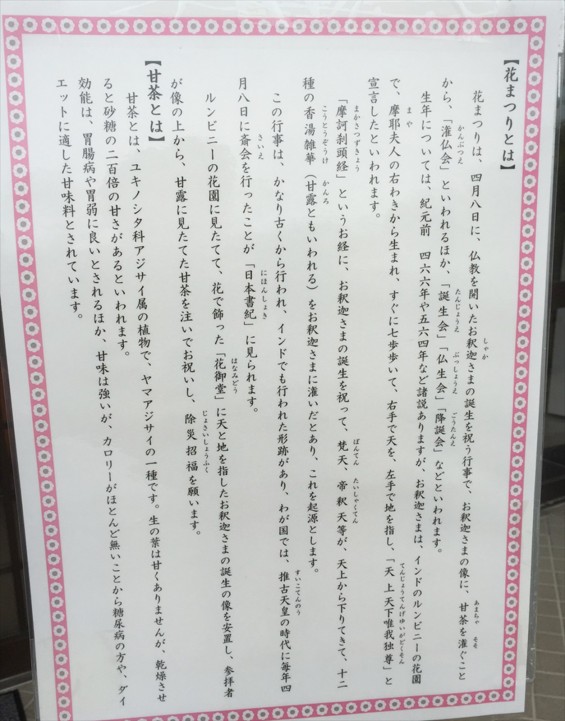 【花まつりとは】
花まつりは、四月八日に、仏教を開いたお釈迦さまの誕生を祝う行事で、お釈迦さまの像に、甘茶を灌ぐこと
から、「灌仏会」といわれるほか、「誕生会」「仏生会」「降誕会」などといわれます。
生年については、紀元前 四六六年や五六四年など諸説ありますが、お釈迦さまは、インドのルンビニーの花園
で、摩耶夫人の右わきから生まれ、すぐに七歩歩いて、右手で天を、左手で地を指し、「天上天下唯我独尊」と
宣言したといわれます。
「摩訶刹頭経」というお経に、お釈迦さまの誕生を祝って、梵天、帝釈天等が、天上から下りてきて、十二
種の香湯雑華(甘露ともいわれる)をお釈迦さまに灌いだとあり、これを起源とします。
この行事は、かなり古くから行われ、インドでも行われた形跡があり、わが国では、推古天皇の時代に毎年四
月八日に斎会を行ったことが「日本書紀」に見られます。
ルンビニーの花園に見たてて、花で飾った「花御堂」に天と地を指したお釈迦さまの誕生の像を安置し、参拝者
が像の上から、甘露に見たてた甘茶を注いでお祝いし、除災招福を願います。
【甘茶とは】
甘茶とは、ユキノシタ科アジサイ属の植物で、ヤマアジサイの一種です。生の葉は甘くありませんが、乾燥させ
ると砂糖の二百倍の甘さがあるといわれます。
効能は、胃腸病や胃弱に良いとされるほか、甘味は強いが、カロリーがほとんど無いことから糖尿病の方や、ダイ
エットに適した甘味料とされています。